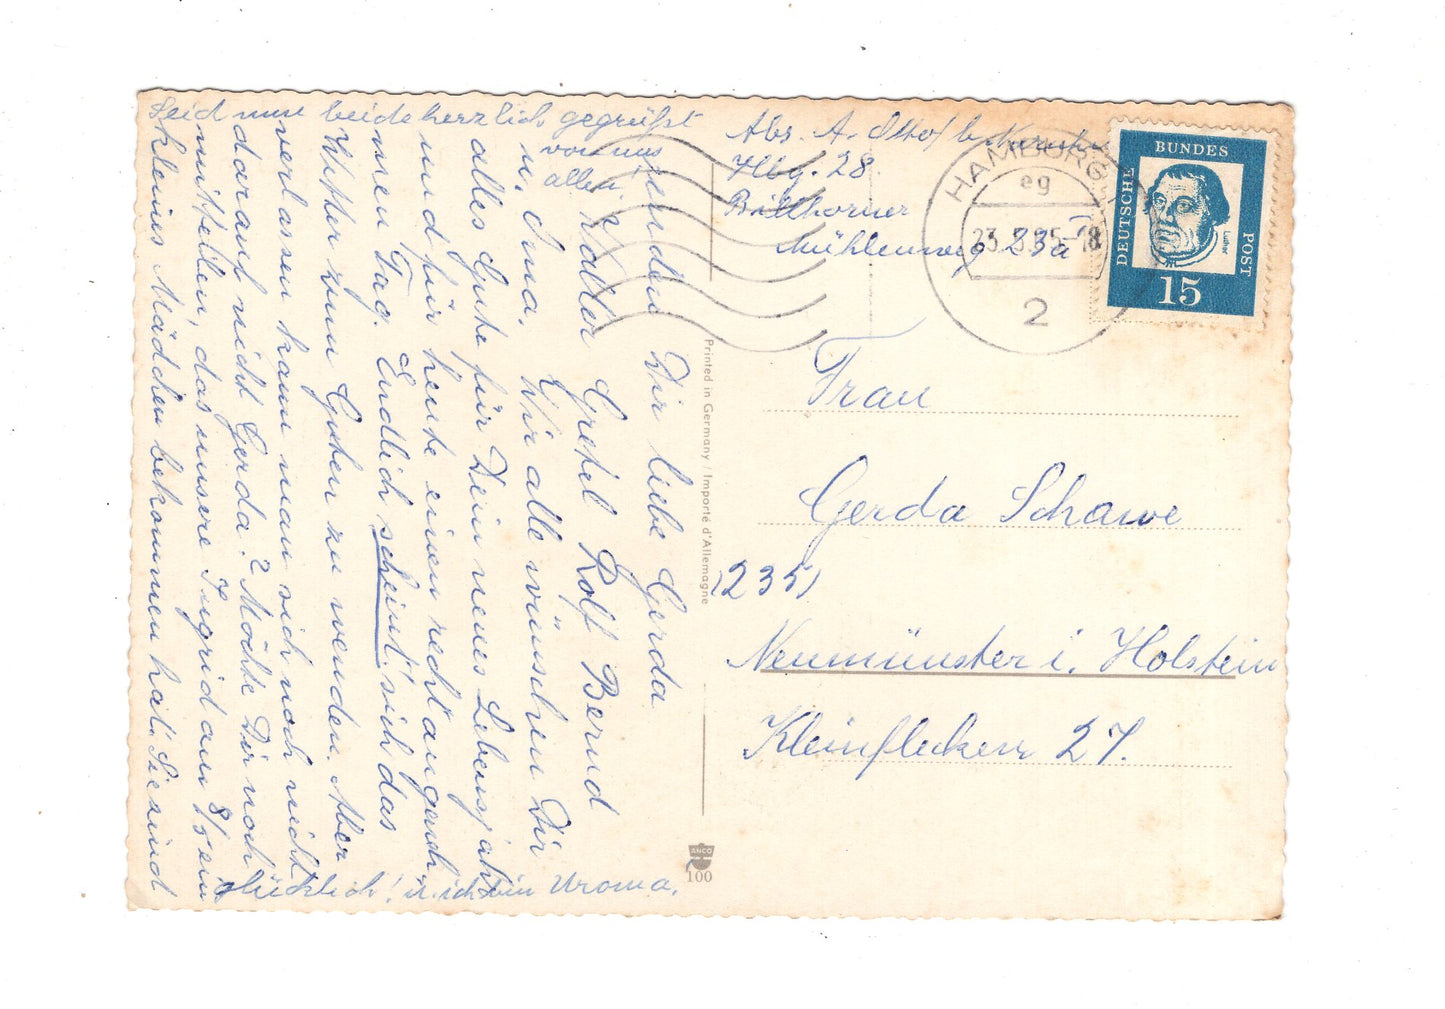 Meiner lieben Gerda
Adler Gretel Rolf Bernd
u. Irma. Wir alle wünschen Dir
alles Gute für Dein neues Lebensjahr
und für heute einen recht angeneh
men Tag. Endlich scheint' sich das
Wetter zum Guten zu wenden. Aber
verlassen kann man sich noch nicht
darauf nicht Gerda? Möchte Dir noch
mitteilen, das unsere Ingrid am 8/5 ein
kleines Mädchen bekommen hat. Sie sind
glücklich! u. ich bin Uroma.
Seid nun beide herzlich gegrüßt
von uns
allen!
Abs. A. Olhof b.
Hbg. 28.
Billhorner
Mühlenweg 23a
HAMBURG
eg
23.5.65-18
2
DEUTSCHE
BUNDES
POST
Luther
15
Frau
Gerda Schawe
(235)
Neumünster i. Holstein
Kleinflecken 27.
Printed in Germany / Importé d'Allemagne
ANCO
100